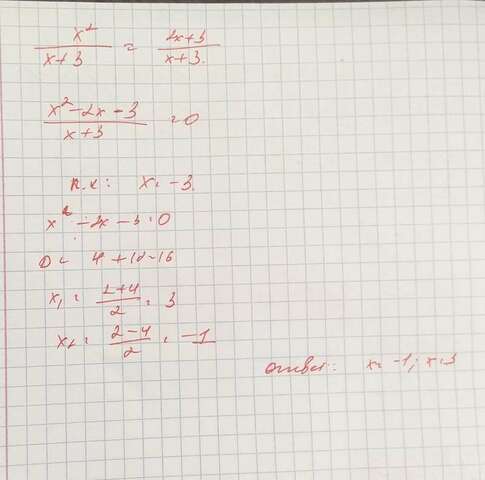 x² / x+3 = 2x+3 / x+3.
x²-2x-3 / x+3 = 0
x = -3.
x² - 2x - 3 = 0
D = 4 + 12 = 16
x₁ = 2+4 / 2 = 3
x₂ = 2-4 / 2 = -1
ответ: x = -1; x = 3